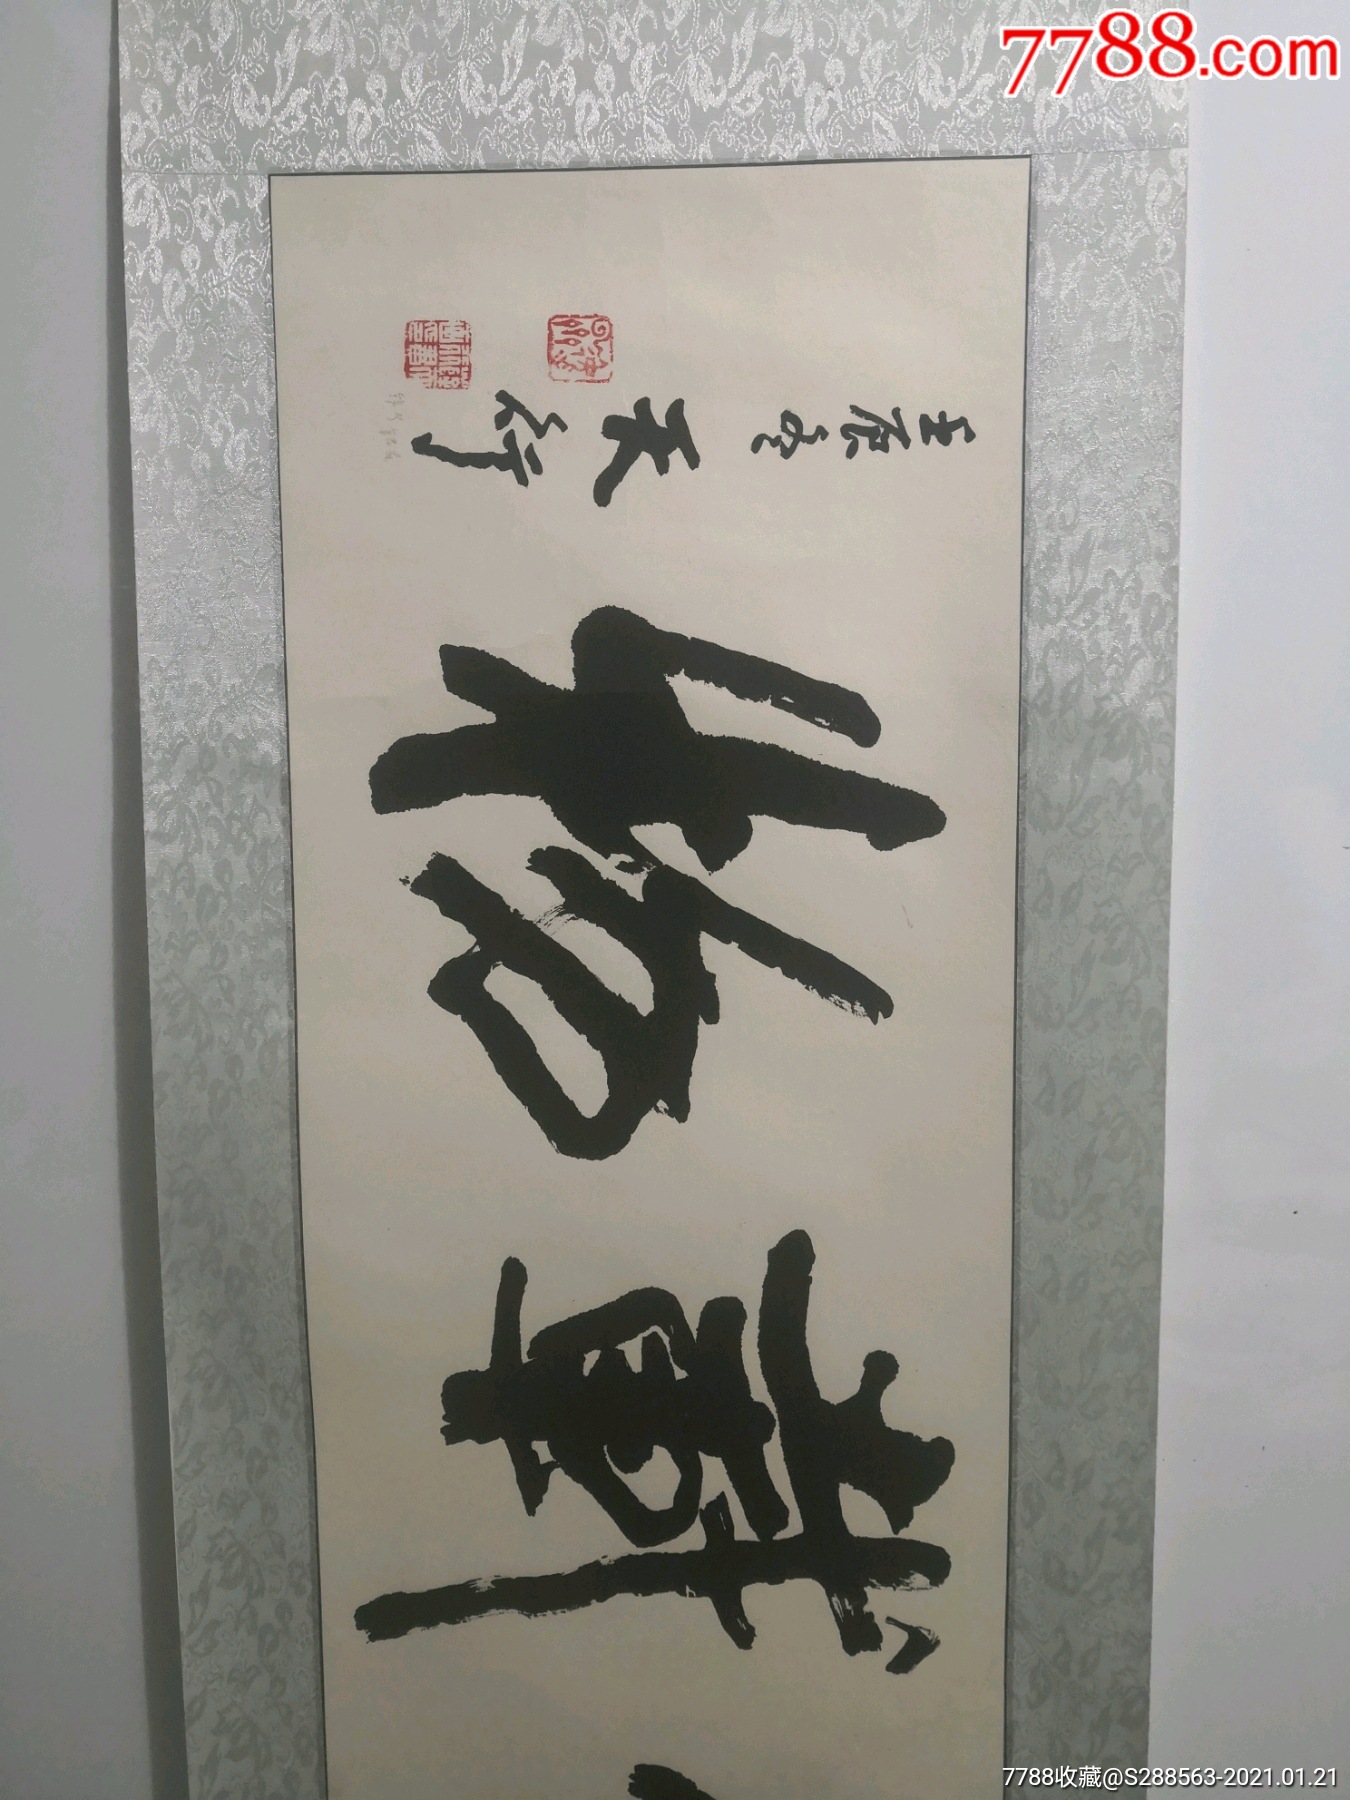 7788.com
載物
壬辰冬 天行
7788收藏@S288563-2021.01.21